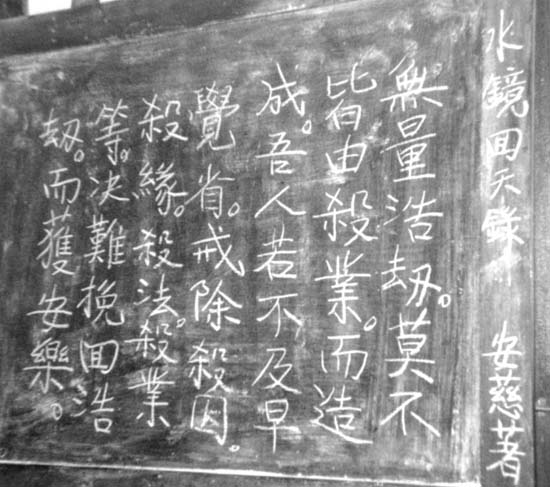 水鏡囬天錄 安慈著
無量浩劫。莫不
皆由殺業。而造
成。吾人若不及早
覺省。戒除殺因。
殺緣。殺法。殺業
等。决難挽囬浩
劫。而獲安樂。